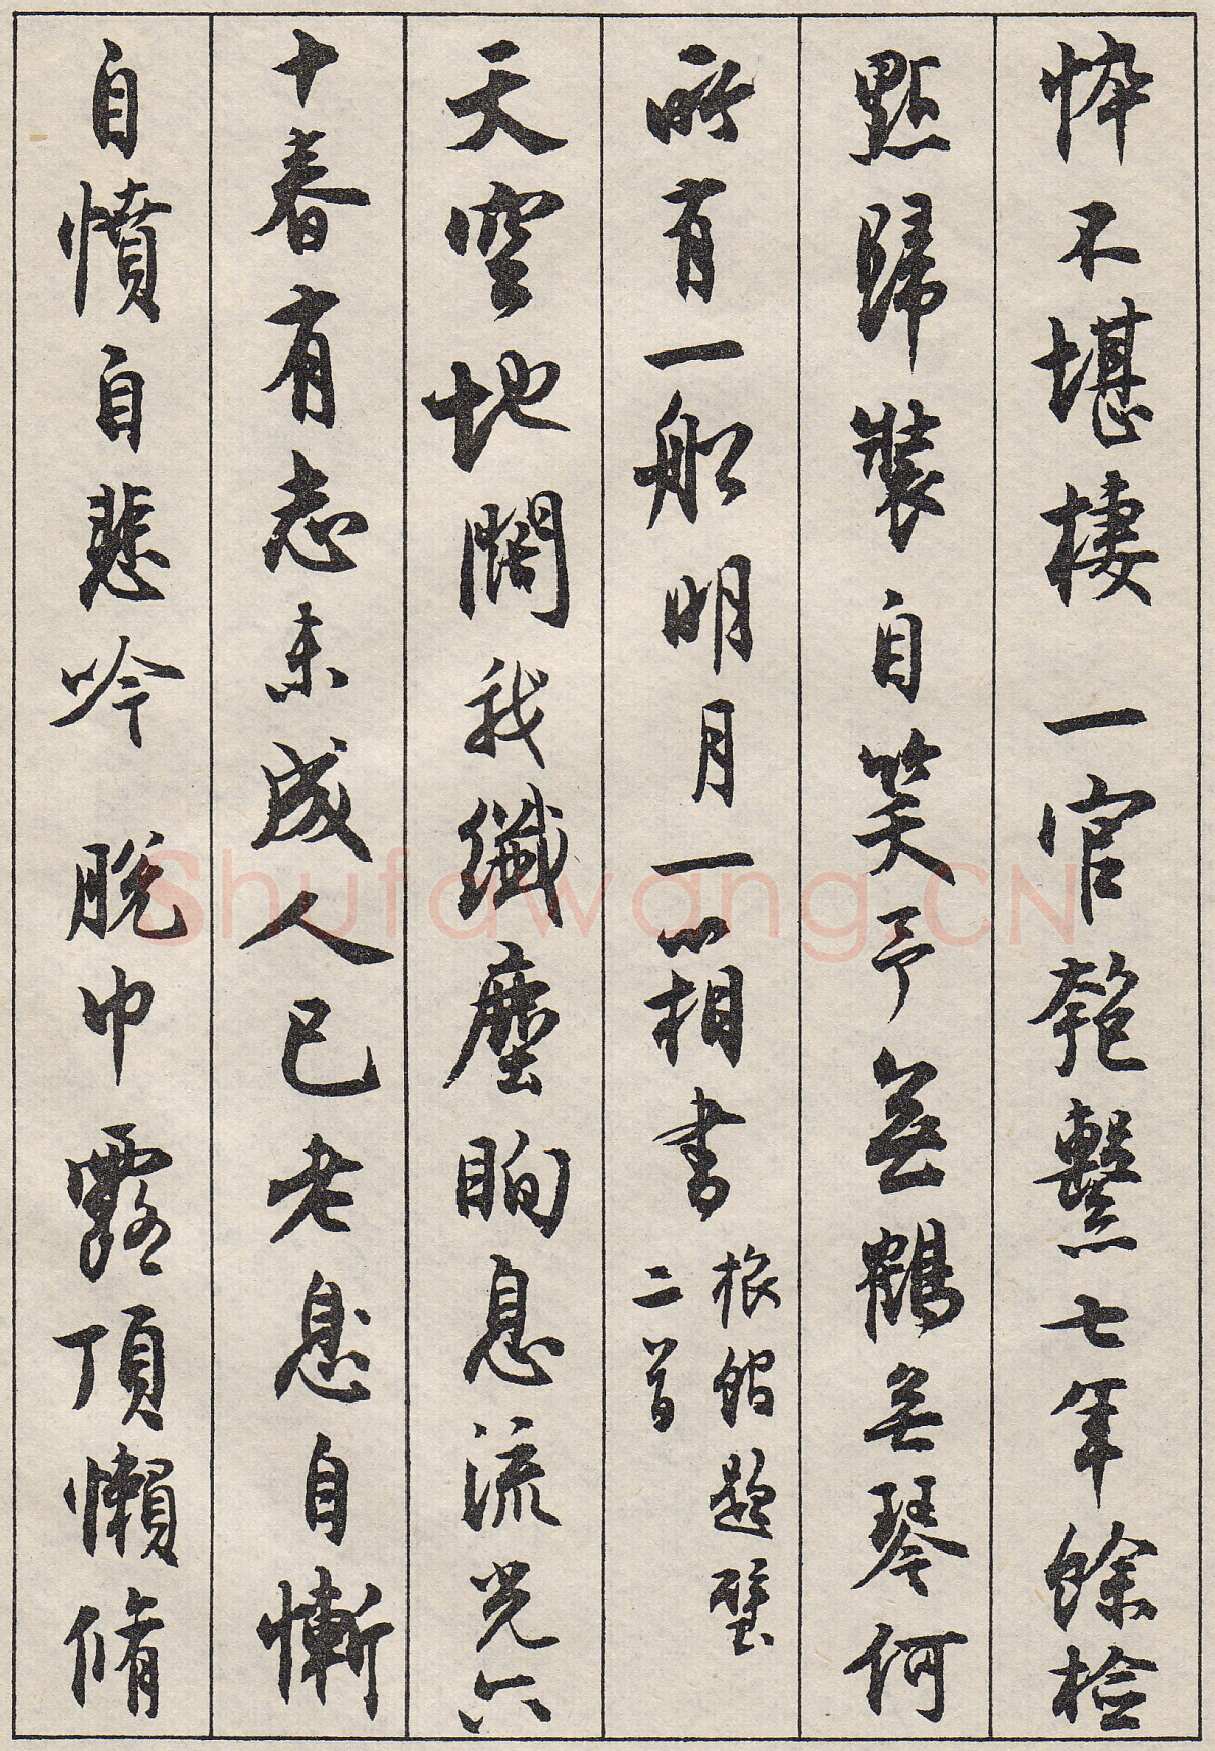 忰不堪棲一官匏繫七年餘檢
點歸裝自笑予無鶴無琴何
所有一船明月一箱書旅館題壁
二首
天空地闊我纖塵眴息流光六
十春有志未成人已老息自慚
自憤自悲吟脫巾露頂懶脩
Shufawang.CN